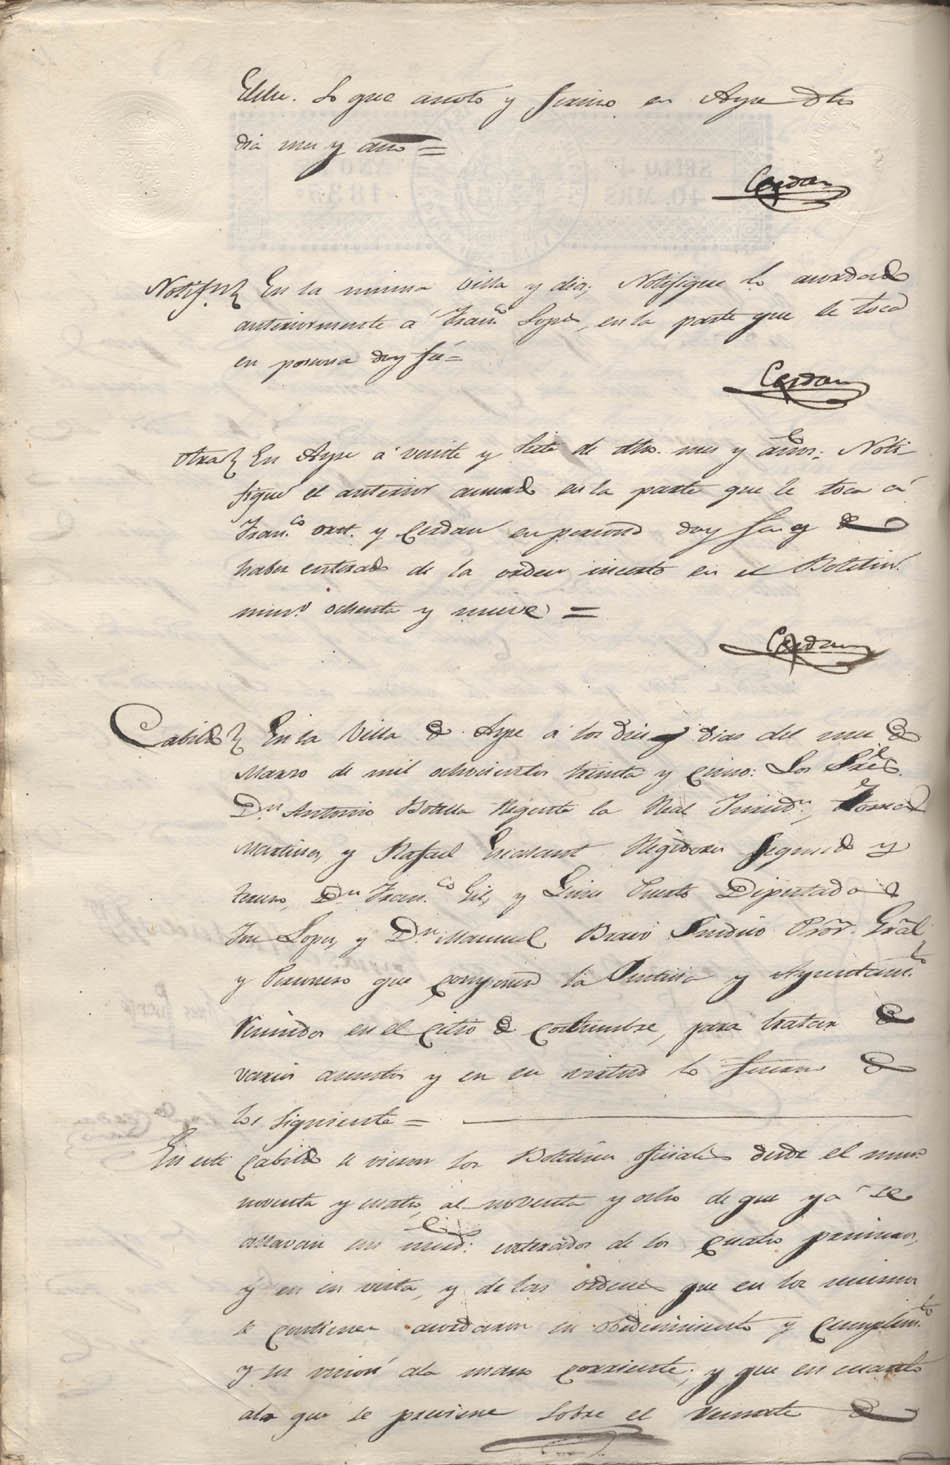 Elche. Lo que anoto y firmo en Aspe dho
dia mes y año =
Cerdan
Notifn En la misma Villa y dia; Notifique lo acordado
anteriormente á Franco Lopez, en la parte que le toca
en persona doy fé =
Cerdan
Otra En Aspe á veinte y siete de dho. mes y año: Noti
fiqué el anterior acuerdo en la parte que le toca á
Franco y Cerdan en persona doy fé y de
haber enterado de la orden inserta en el Boletin
numo ochenta y nueve =
Cerdan
Cabildo En la Villa de Aspe á los diez dias del mes de
Marzo de mil ochocientos treinta y cinco: Los Sres
Dn Antonio Botella Regente la Real Jurisdn,
Martinez, y Rafael Regidores segundo y
tercero, Dn Franco Gil, y Puerto Diputados
Jose Lopez, y Dn Manuel Bravo Sindico Pror Gral
y Personero que componen la Justicia y Ayuntamto
Reunidos en el citio de costumbre, para tratar de
varios asuntos y en su virtud lo hicieron de
los siguientes =
En este Cabildo se vieron los Boletines oficiales desde el num
noventa y cuatro, al noventa y ocho de que ya se
allavan sus enterados de los cuatro primeros,
y en su vista, y de las ordenes que en los mismos
se contienen acordaron su obedecimiento y cumplimto
y su union ala mano corriente; y que en cuanto
ala que se previene sobre el remate de